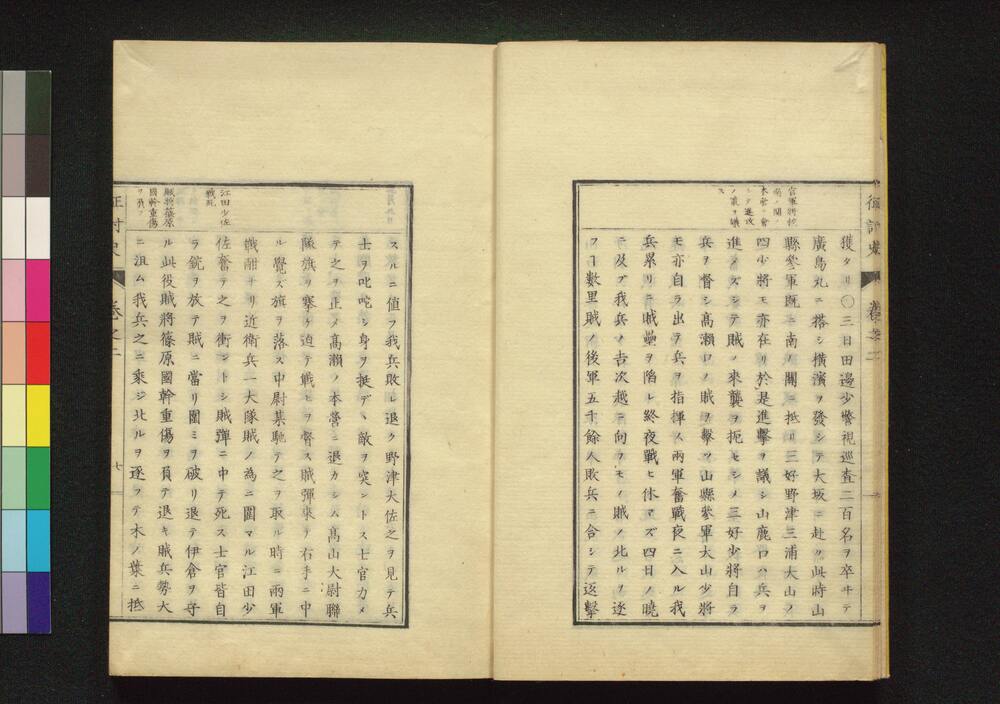 征討史
卷之二
官軍將校
南ノ關ノ
本營ニ會
シテ進攻
ノ策ヲ議
ス
獲タリ○三日田邊少警視巡査二百名ヲ卒ヰテ
廣島丸ニ搭シ橫濱ヲ發シテ大坂ニ赴ク此時山
縣參軍既ニ南ノ關ニ抵リ三好野津三浦大山ノ
四少將モ亦在リ於是進擊ヲ議シ山鹿口ハ兵ヲ
進メズシテ賊ノ來襲ヲ扼セシメ三好少將自ラ
兵ヲ督シ高瀨口ノ賊ヲ擊ツ山縣參軍大山少將
モ亦自ラ出テ兵ヲ指揮ス兩軍奮戰夜ニ入ル我
兵累リニ賊壘ヲ陷レ終夜戰ヒ休マズ四日ノ曉
ニ及ブ我兵ノ吉次越ニ向フモノ賊ノ北ルヲ逐
フヿ數里賊ノ後軍五千餘人敗兵ニ合シテ返擊
江田少佐
戰死
賊將篠原
國幹重傷
ヲ負フ
スルニ値フ我兵敗レ退ク野津大佐之ヲ見テ兵
士ヲ叱咤シ身ヲ挺デヽ敵ヲ突ントス士官力メ
テ之ヲ止メ高瀨ノ本營ニ退カシム高山大尉聯
隊旗ヲ搴ケ迫テ戰ヒヲ督ス賊彈來テ右手ニ中
ル覺ヘズ旗ヲ落ス中尉某馳テ之ヲ取ル時ニ兩軍
戰酣ナリ近衛兵一大隊賊ノ為ニ圍マル江田少
佐奮テ之ヲ衝ントシ賊彈ニ中テ死ス士官皆自
ラ銃ヲ放テ賊ニ當リ圍ミヲ破リ退テ伊倉ヲ守
ル此役賊將篠原國幹重傷ヲ負テ退キ賊兵勢大
ニ沮ム我兵之ニ乘ジ北ルヲ逐フテ木ノ葉ニ抵
征討史
卷之二
七